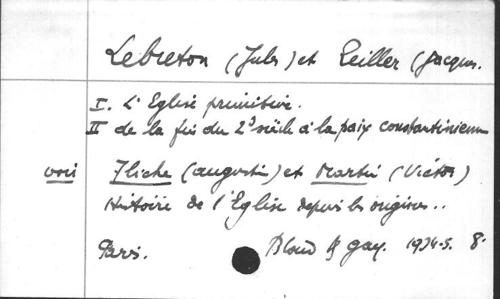 Lebreton (Jules) et Zeiller (Jacques.
I. L'Eglise primitive.
II de la fin du 2d siècle à la paix constantinienne
voir Fliche (augustin) et Martin (Victor)
Histoire de l'Eglise depuis les origines..
Paris. Bloud & gay. 1934-5. 8.